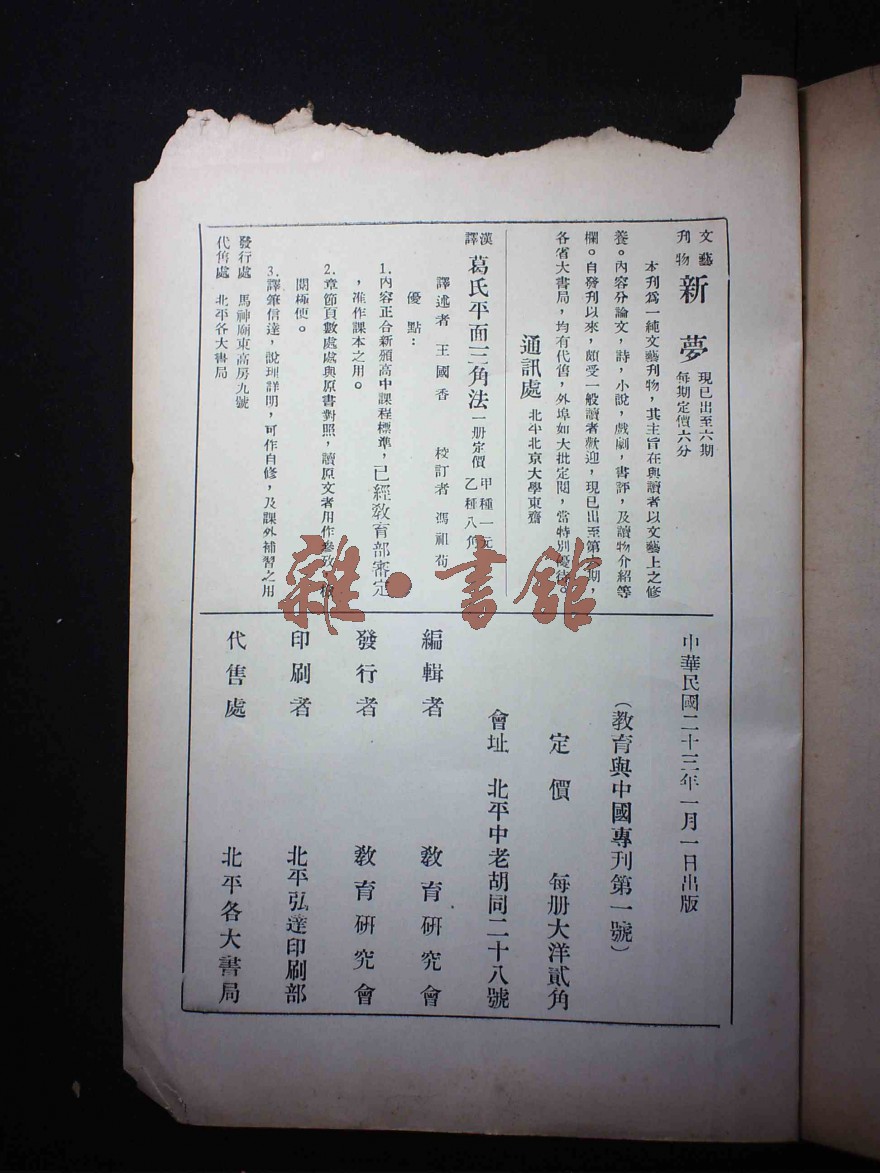 文藝刊物 新夢 現已出至六期 每期定價六分
本刊為一純文藝刊物，其主旨在與讀者以文藝上之修
養。內容分論文，詩，小說，戲劇，書評，及讀物介紹等
欄。自發刊以來，頗受一般讀者歡迎，現已出至第 期，
各省大書局，均有代售，外埠如大批定閱，當特別優待。
通訊處 北平北京大學東齋
漢譯 葛氏平面三角法 一册定價 甲種一元 乙種八角
譯述者 王國香 校訂者 馮祖荀
優點：
1.內容正合新頒高中課程標準，已經教育部審定
，准作課本之用。
2.章節頁數處處與原書對照，讀原文者用作參攷，檢
閱極便。
3.譯筆信達，說理詳明，可作自修，及課外補習之用
發行處 馬神廟東高房九號
代售處 北平各大書局
中華民國二十三年一月一日出版
（教育與中國專刊第一號）
定價 每册大洋貳角
會址 北平中老胡同二十八號
編輯者 教育研究會
發行者 教育研究會
印刷者 北平弘達印刷部
代售處 北平各大書局
雜·書館